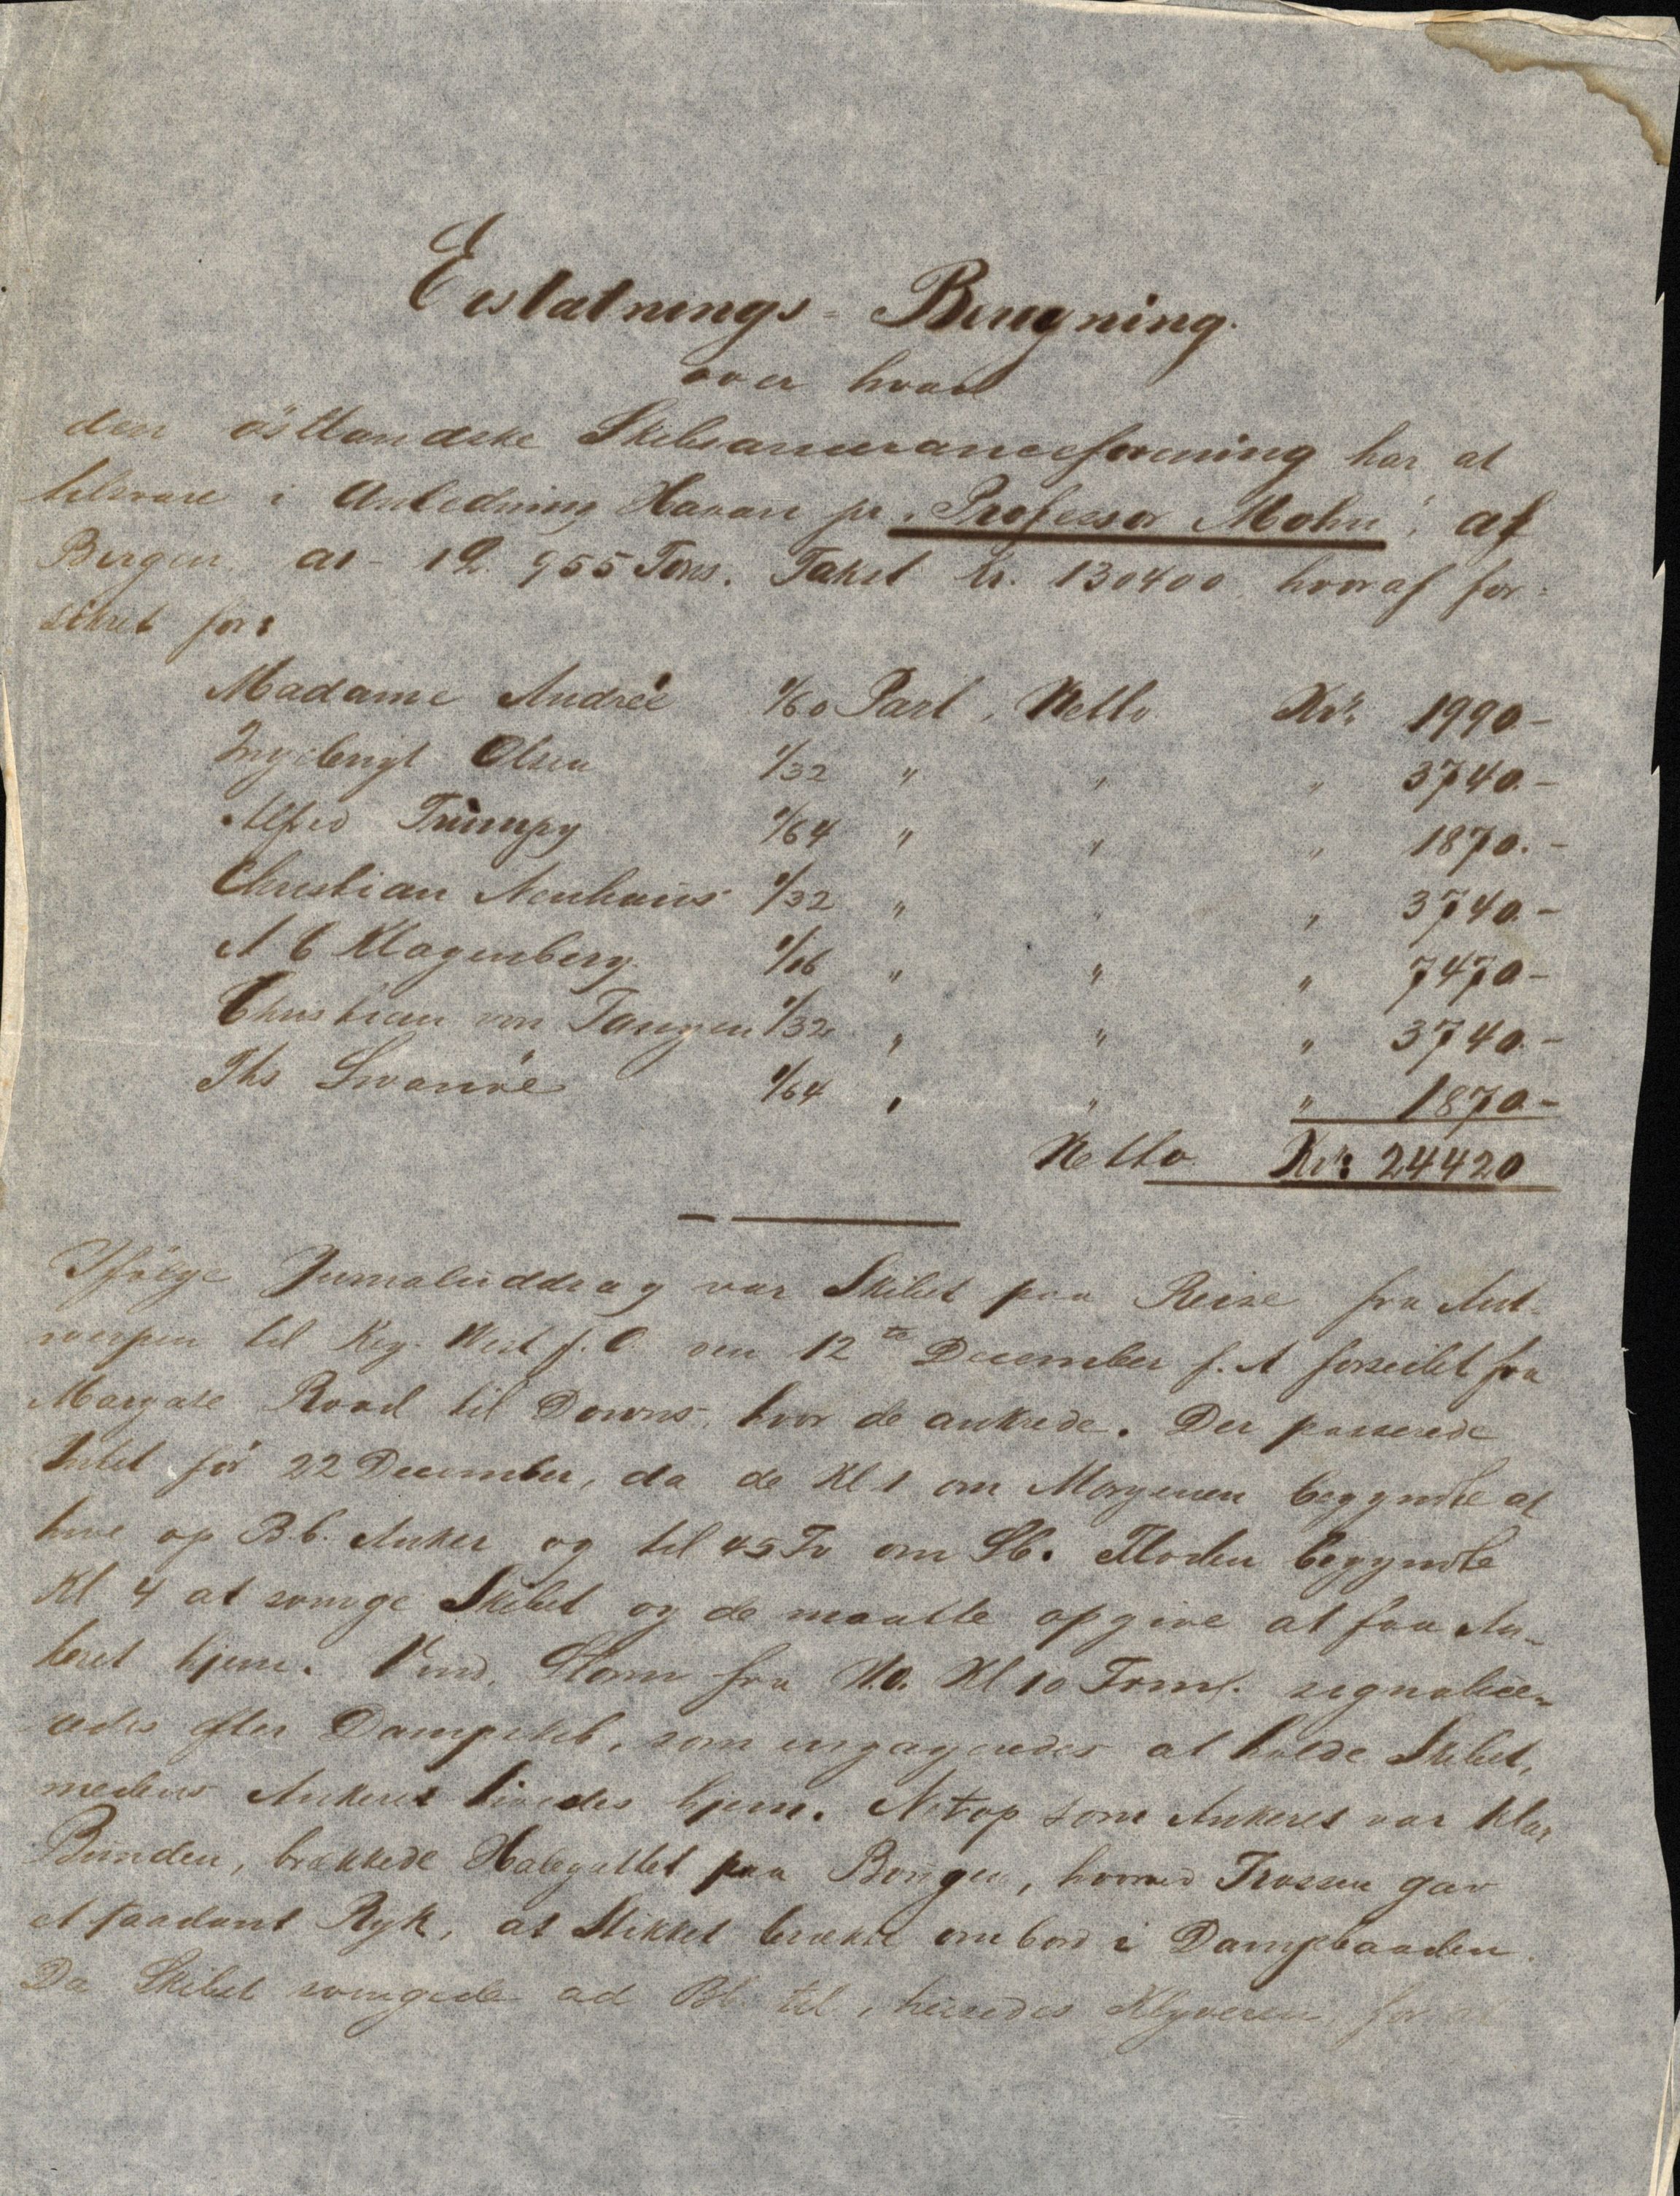 Erstatnings-Beregning
over hvad
den østlandske Skibsassuranceforening har at
tilsvare i Anledning Havari pr "Professor Mohn", af
Bergen, a1 - 1 955 Tons. Takst Kr. 130400, hvoraf for-
sikret for:
Madame Andrée 1/60 Part, Netto Kr: 1990.-
Ingebrigt Olsen 1/32 " " " 3740.-
Alfred Trumpy 1/64 " " " 1870.-
Christian Neuhaus 1/32 " " " 3740.-
A C Klagenberg 1/16 " " " 7470-
Christian von Tangen 1/32 " " " 3740.-
Ths Svanöe 1/64 " " " 1870-
Netto Kr: 24420
Ifølge Jurnaluddrag var Skibet paa Reise fra Ant-
werpen til Key-West f. O. den 12te December f. A forseilet fra
Margate Road til Downs, hvor de ankrede. Der passerede
Intet før 22 December, da de Kl 1 om Morgenen begyndte at
hive op Bb. Anker og til 45 Fv om Sb. Floden begyndte
Kl 4 at svinge Skibet og de maatte opgive at faa An-
keret hjem. Vind, Storm fra N.O. Kl 10 Formd. signalise-
redes efter Dampskib, som engageredes at holde Skibet,
medens Ankeret hivedes hjem. Netop som Ankeret var klar
Bunden, brækkede Halegattet paa Bougen, hvorved Trossen gav
et saadant Ryk, at Stikket brækte ombord i Dampbaaden.
Da Skibet svingede ad Bb. til, heisedes Klyveren, for at